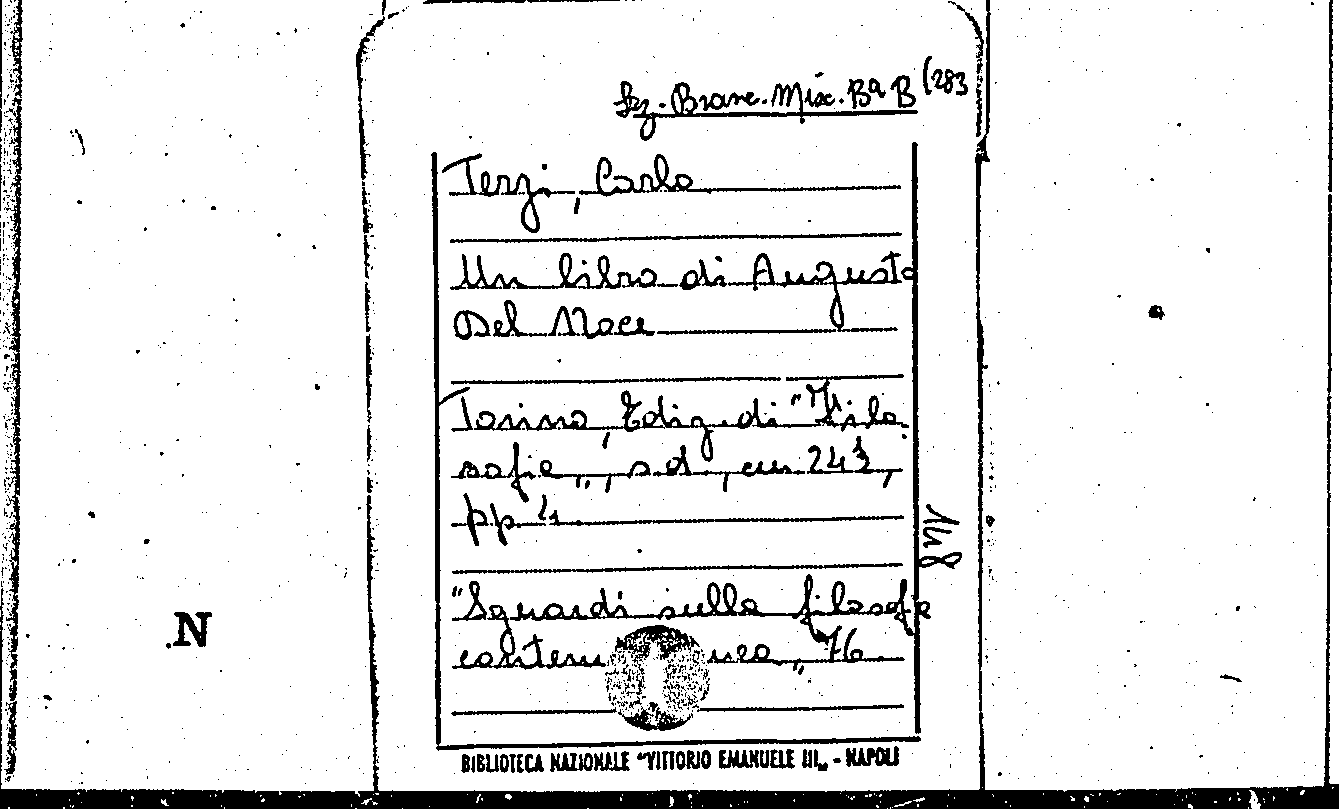 Sez. Branc. Misc. Bª B (283
Terzi, Carlo
Un libro di Augusto
Del Noce
Torino, Ediz. di "Filo
sofia„, s.d., cm. 24½,
pp 4.
"Sguardi sulla filosofia
contem nea„ 76.
148
N
BIBLIOTECA NAZIONALE "VITTORIO EMANUELE III„ - NAPOLI